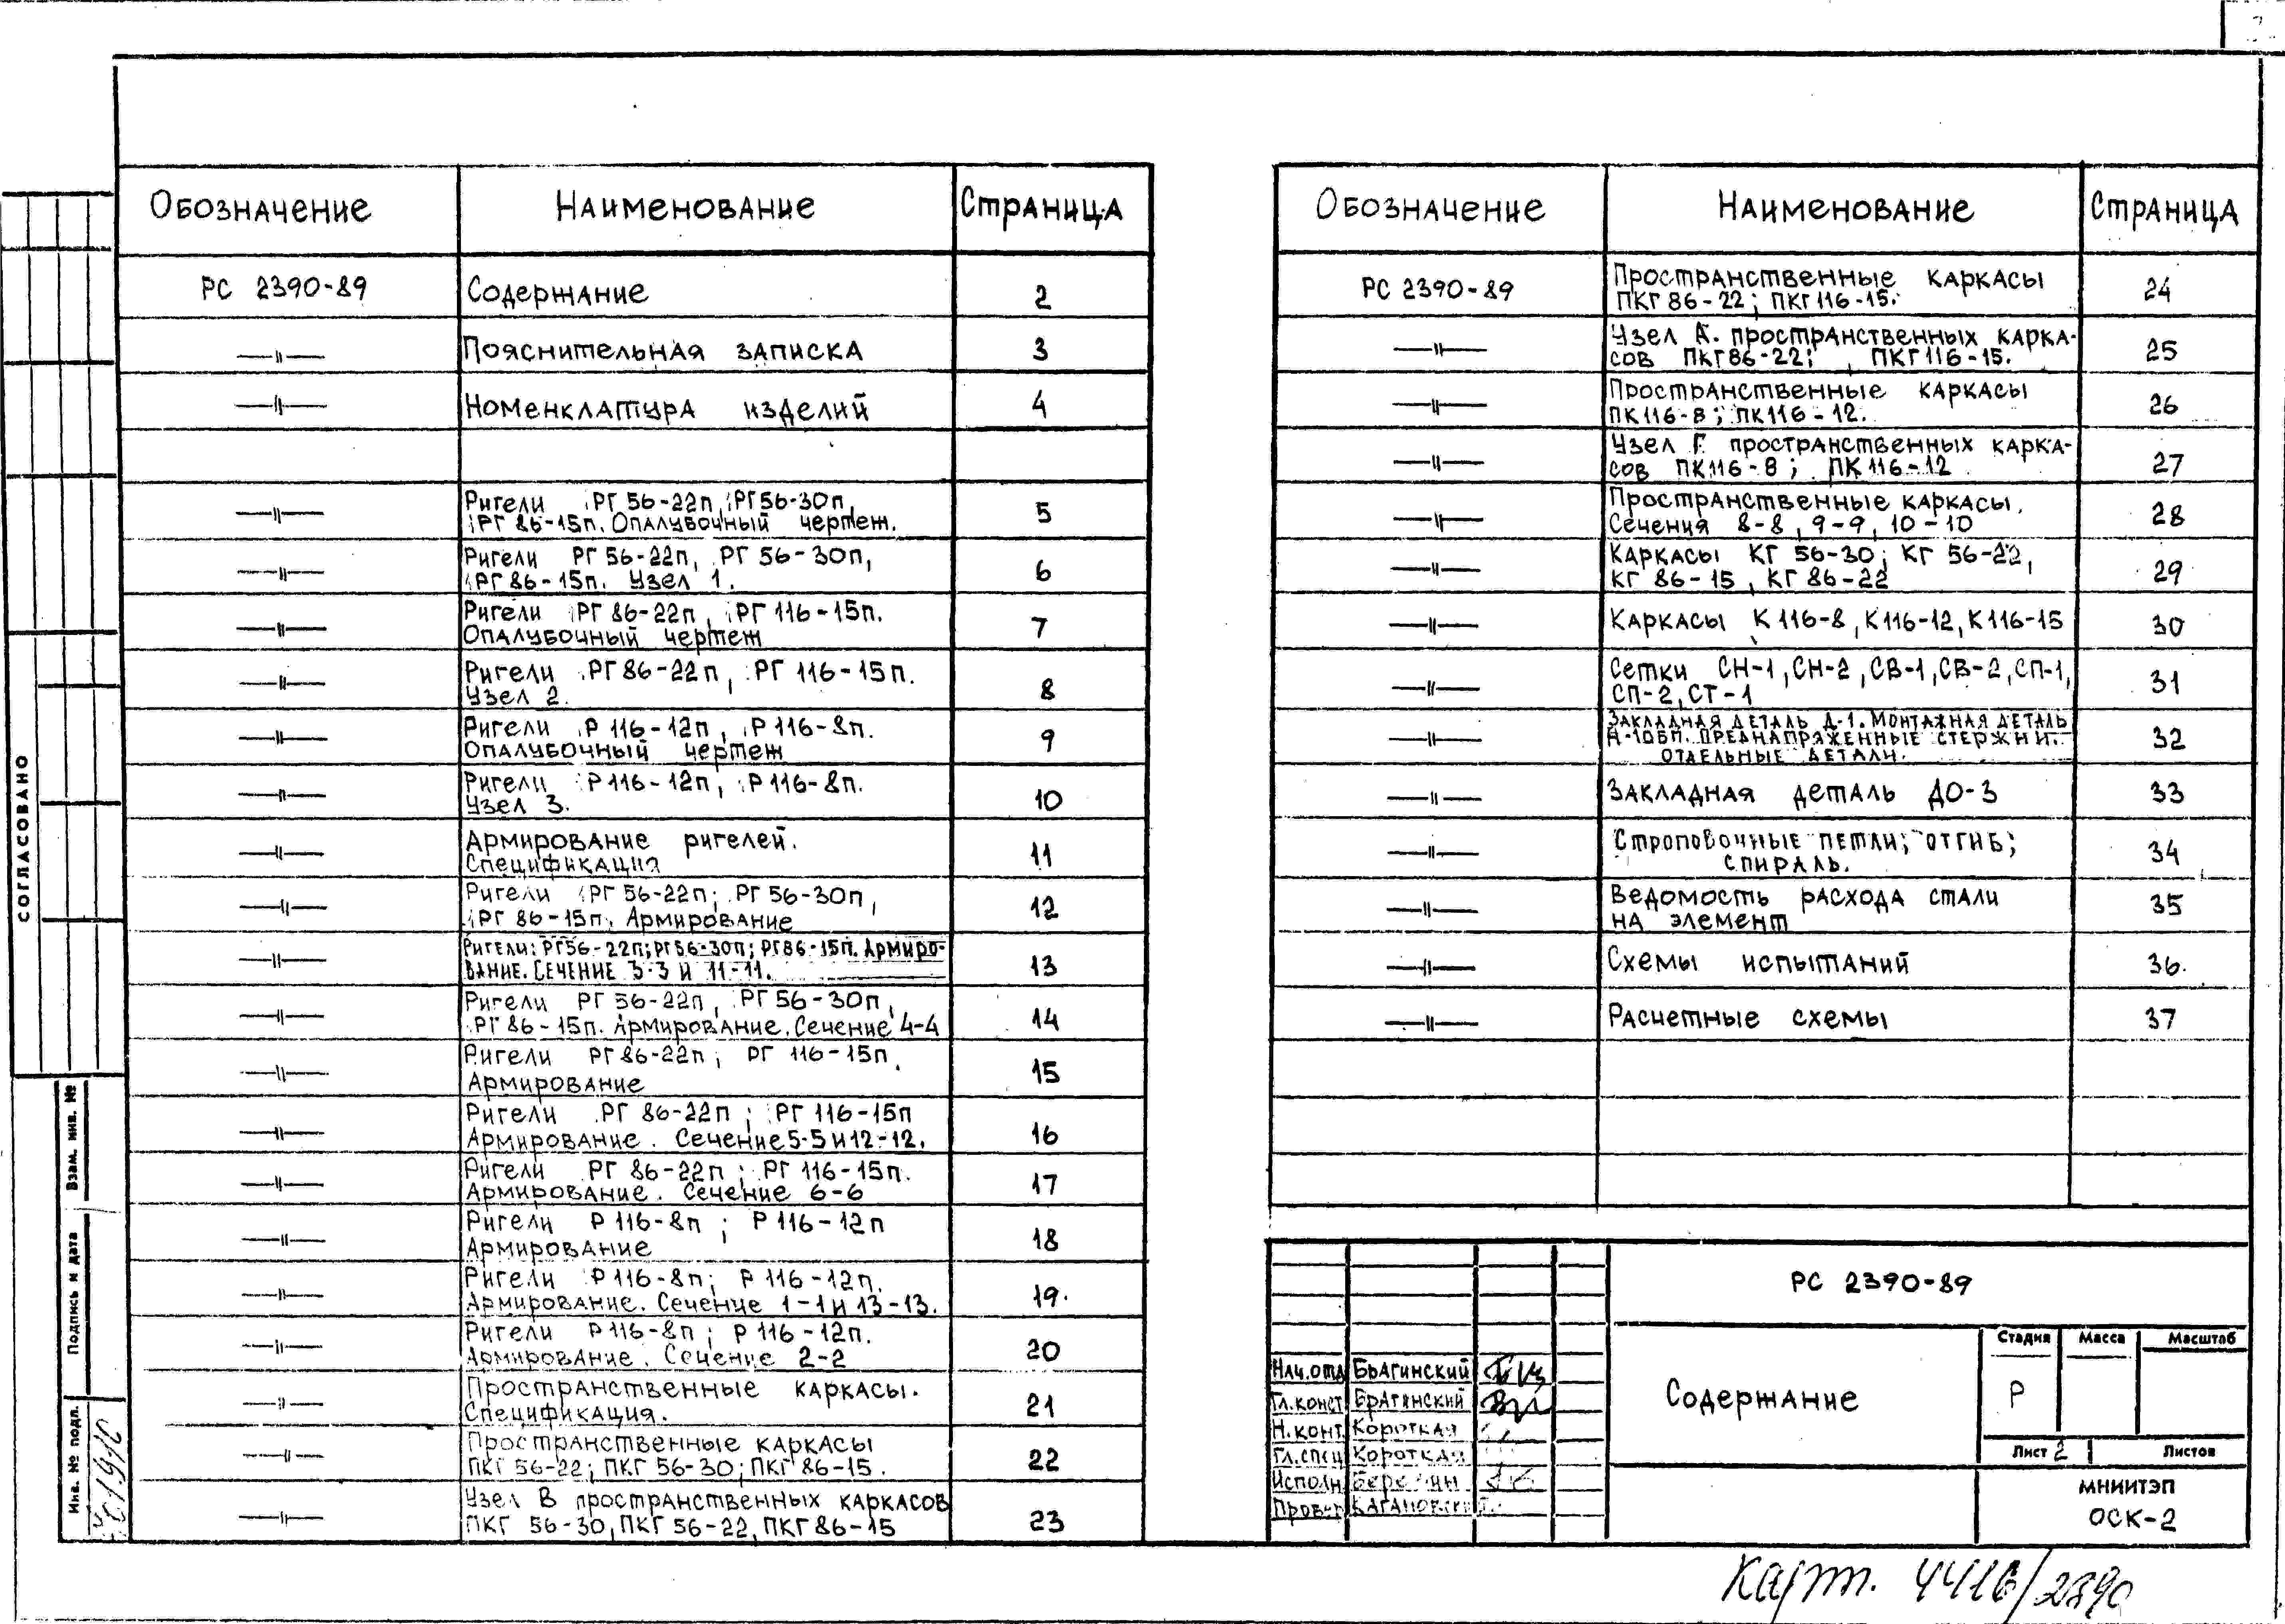 Обозначение Наименование Страница
РС 2390-89 Содержание 2
—"— Пояснительная записка 3
—"— Номенклатура изделий 4
—"— Ригели РГ 56-22п, РГ 56-30п,
РГ 86-15п. Опалубочный чертеж. 5
—"— Ригели РГ 56-22п, РГ 56-30п,
РГ 86-15п. Узел 1. 6
—"— Ригели РГ 86-22п, РГ 116-15п.
Опалубочный чертеж 7
—"— Ригели РГ 86-22п, РГ 116-15п.
Узел 2. 8
—"— Ригели Р 116-12п, Р 116-8п.
Опалубочный чертеж 9
—"— Ригели Р 116-12п, Р 116-8п.
Узел 3. 10
—"— Армирование ригелей.
Спецификация 11
—"— Ригели РГ 56-22п; РГ 56-30п,
РГ 86-15п. Армирование 12
—"— Ригели: РГ56-22п; РГ56-30п; РГ86-15п. Армиро-
вание. Сечение 3-3 и 11-11. 13
—"— Ригели РГ 56-22п, РГ 56-30п,
РГ 86-15п. Армирование. Сечение 4-4 14
—"— Ригели РГ 86-22п; РГ 116-15п.
Армирование 15
—"— Ригели РГ 86-22п; РГ 116-15п
Армирование. Сечение 5-5 и 12-12. 16
—"— Ригели РГ 86-22п; РГ 116-15п.
Армирование. Сечение 6-6 17
—"— Ригели Р 116-8п; Р 116-12п
Армирование 18
—"— Ригели Р 116-8п; Р 116-12п.
Армирование. Сечение 1-1 и 13-13. 19.
—"— Ригели Р 116-8п; Р 116-12п.
Армирование. Сечение 2-2 20
—"— Пространственные каркасы.
Спецификация. 21
—"— Пространственные каркасы
ПКГ 56-22; ПКГ 56-30; ПКГ 86-15. 22
—"— Узел В пространственных каркасов
ПКГ 56-30, ПКГ 56-22, ПКГ 86-15 23
Обозначение Наименование Страница
РС 2390-89 Пространственные каркасы
ПКГ 86-22; ПКГ 116-15. 24
—"— Узел А. пространственных карка-
сов ПКГ 86-22; ПКГ 116-15. 25
—"— Пространственные каркасы
ПК 116-8; ПК 116-12. 26
—"— Узел Г пространственных карка-
сов ПК 116-8; ПК 116-12 27
—"— Пространственные каркасы.
Сечения 8-8, 9-9, 10-10 28
—"— Каркасы КГ 56-30; КГ 56-22,
КГ 86-15, КГ 86-22 29
—"— Каркасы К 116-8, К 116-12, К 116-15 30
—"— Сетки СН-1, СН-2, СВ-1, СВ-2, СП-1,
СП-2, СТ-1 31
—"— Закладная деталь Д-1. Монтажная деталь
Н-10бп. Преднапряженные стержни.
Отдельные детали. 32
—"— Закладная деталь ДО-3 33
—"— Строповочные петли; отгиб;
спираль. 34
—"— Ведомость расхода стали
на элемент 35
—"— Схемы испытаний 36.
—"— Расчетные схемы 37
РС 2390-89
Содержание
Стадия Масса Масштаб
Р
Лист 2 Листов
МНИИТЭП
ОСК-2
Нач.отд Брагинский
Гл.конст Брагинский
Н.конт Короткая
Гл.спец Короткая
Исполн
Провер Кагановский
СОГЛАСОВАНО
Взам. инв. №
Подпись и дата
Инв. № подл.
Карт. 4416/2390